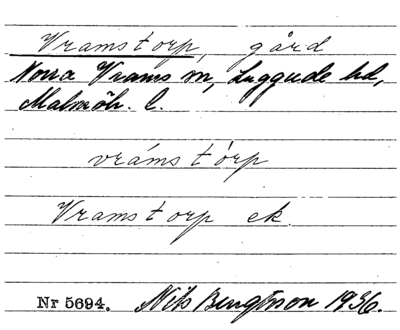 Vramstorp, gård
Norra Vrams sn, Luggude hd,
Malmöh. l.
vrámstòrp
Vramstorp ek.
Nr 5694. Nils Bengtsson 1936.